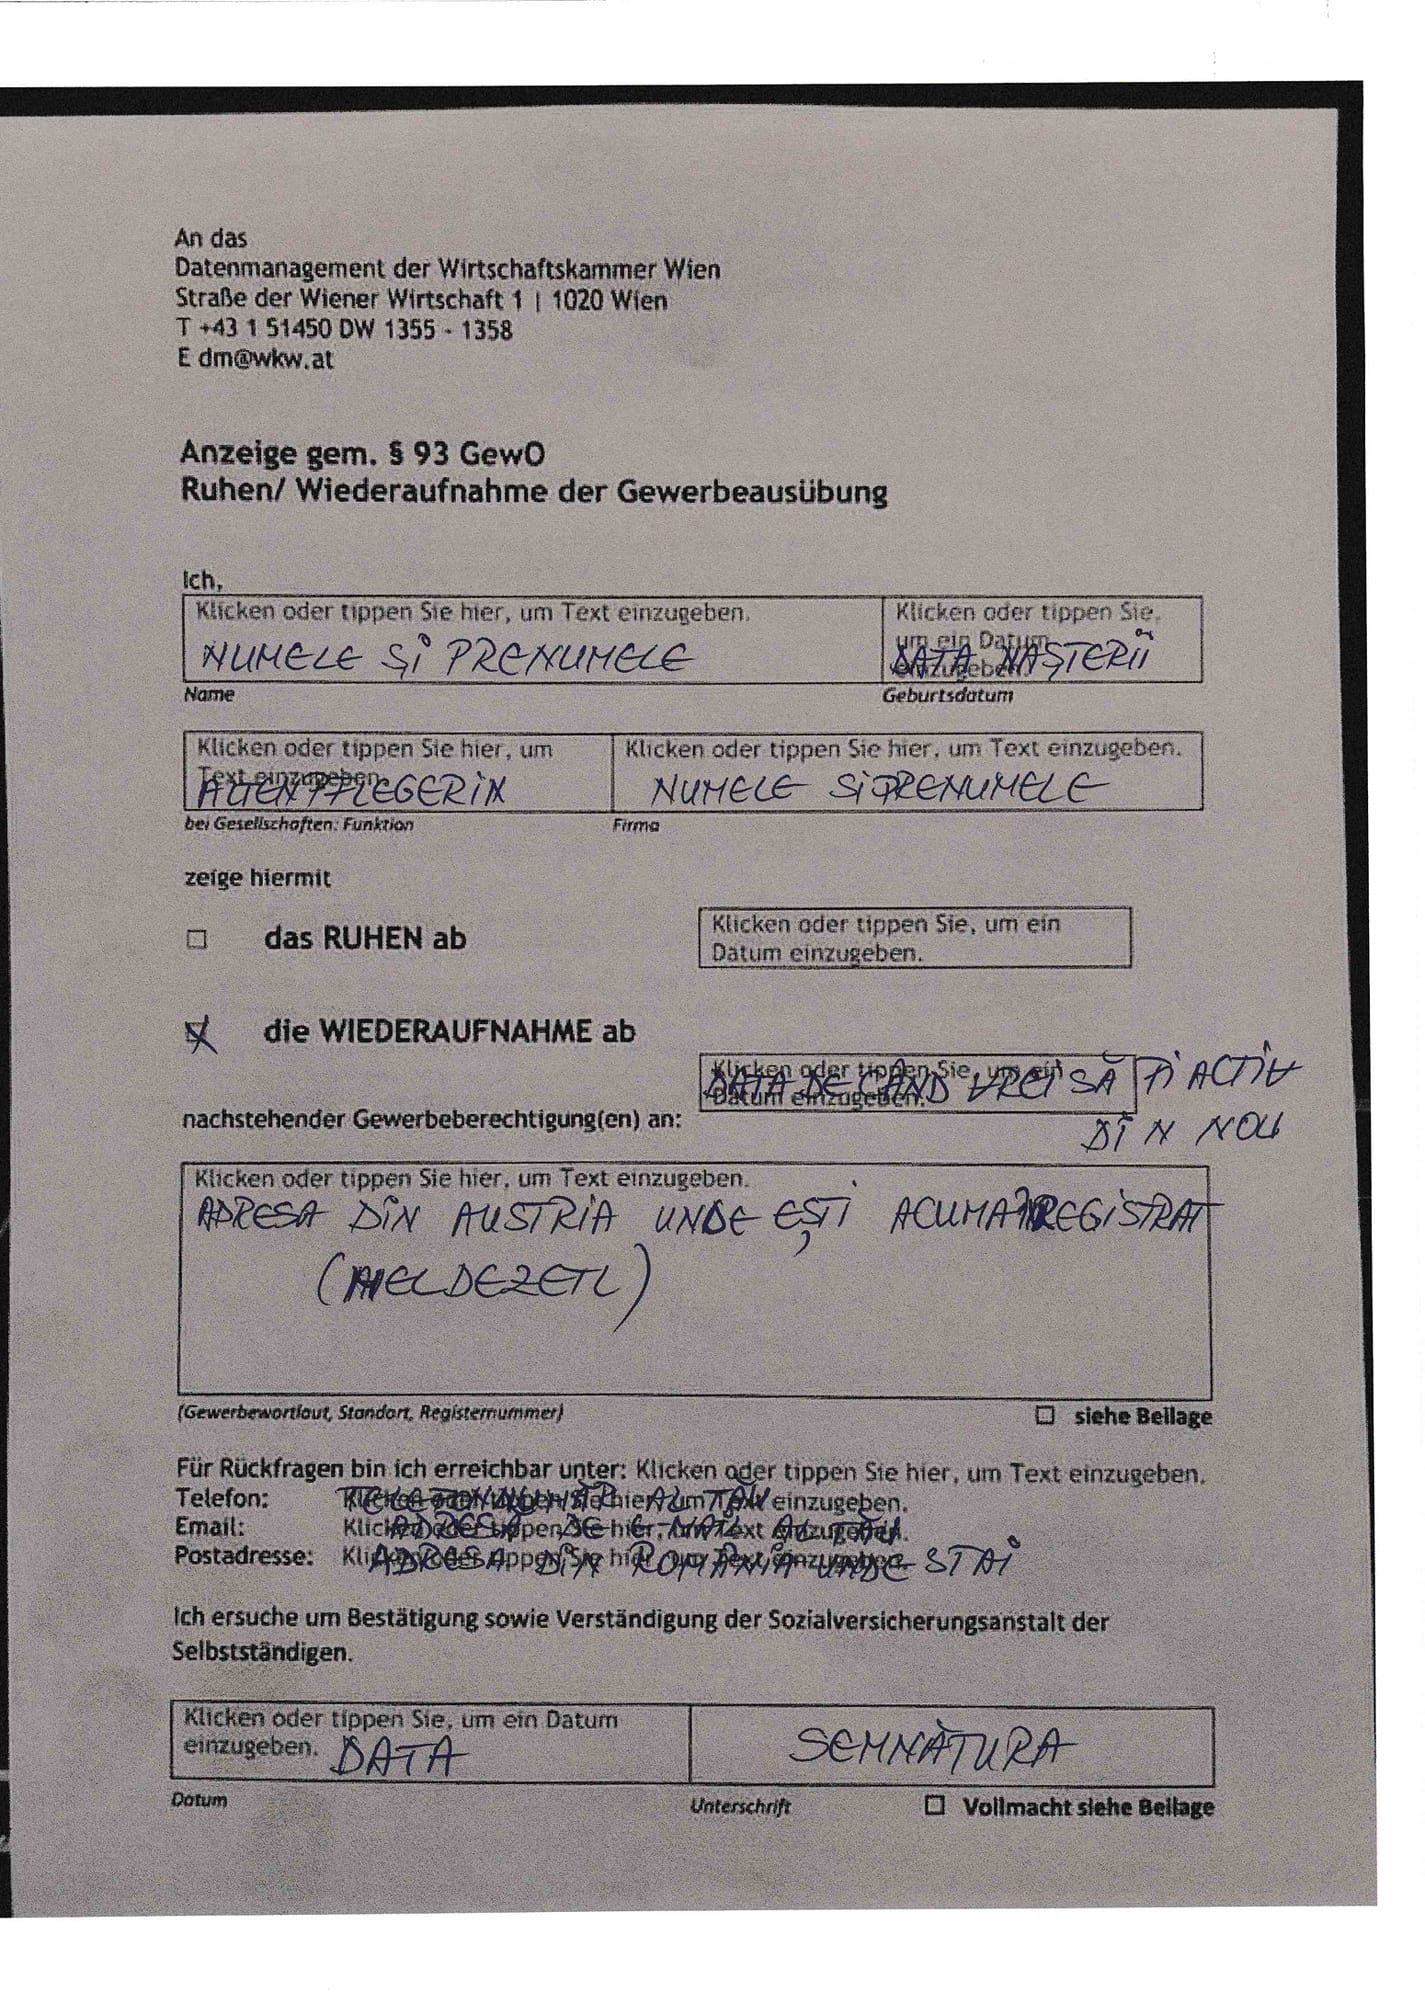 An das
Datenmanagement der Wirtschaftskammer Wien
Straße der Wiener Wirtschaft 1 | 1020 Wien
T +43 1 51450 DW 1355 - 1358
E dm@wkw.at
Anzeige gem. § 93 GewO
Ruhen/ Wiederaufnahme der Gewerbeausübung
Ich,
Klicken oder tippen Sie hier, um Text einzugeben.
NUMELE ȘI PRENUMELE
Klicken oder tippen Sie,
um ein Datum
einzugeben.
DATA NAȘTERII
Name
Geburtsdatum
Klicken oder tippen Sie hier, um
Text einzugeben.
ALTENPFLEGERIN
Klicken oder tippen Sie hier, um Text einzugeben.
NUMELE SI PRENUMELE
bei Gesellschaften: Funktion
Firma
zeige hiermit
☐ das RUHEN ab
Klicken oder tippen Sie, um ein
Datum einzugeben.
☒ die WIEDERAUFNAHME ab
Klicken oder tippen Sie, um ein
Datum einzugeben.
DATA DE CÂND VREI SĂ FI ACTIV
DIN NOU
nachstehender Gewerbeberechtigung(en) an:
Klicken oder tippen Sie hier, um Text einzugeben.
ADRESA DIN AUSTRIA UNDE EȘTI ACUMA REGISTRAT
(MELDEZETL)
(Gewerbewortlaut, Standort, Registernummer)
☐ siehe Beilage
Für Rückfragen bin ich erreichbar unter: Klicken oder tippen Sie hier, um Text einzugeben.
Telefon: Klicken oder tippen Sie hier, um Text einzugeben.
AL TĂU
Email: Klicken oder tippen Sie hier, um Text einzugeben.
ADRESA DE E-MAIL AL TĂU
Postadresse: Klicken oder tippen Sie hier, um Text einzugeben.
ADRESA DIN ROMÂNIA UNDE STAI
Ich ersuche um Bestätigung sowie Verständigung der Sozialversicherungsanstalt der
Selbstständigen.
Klicken oder tippen Sie, um ein Datum
einzugeben. DATA
SEMNĂTURA
Datum
Unterschrift
☐ Vollmacht siehe Beilage